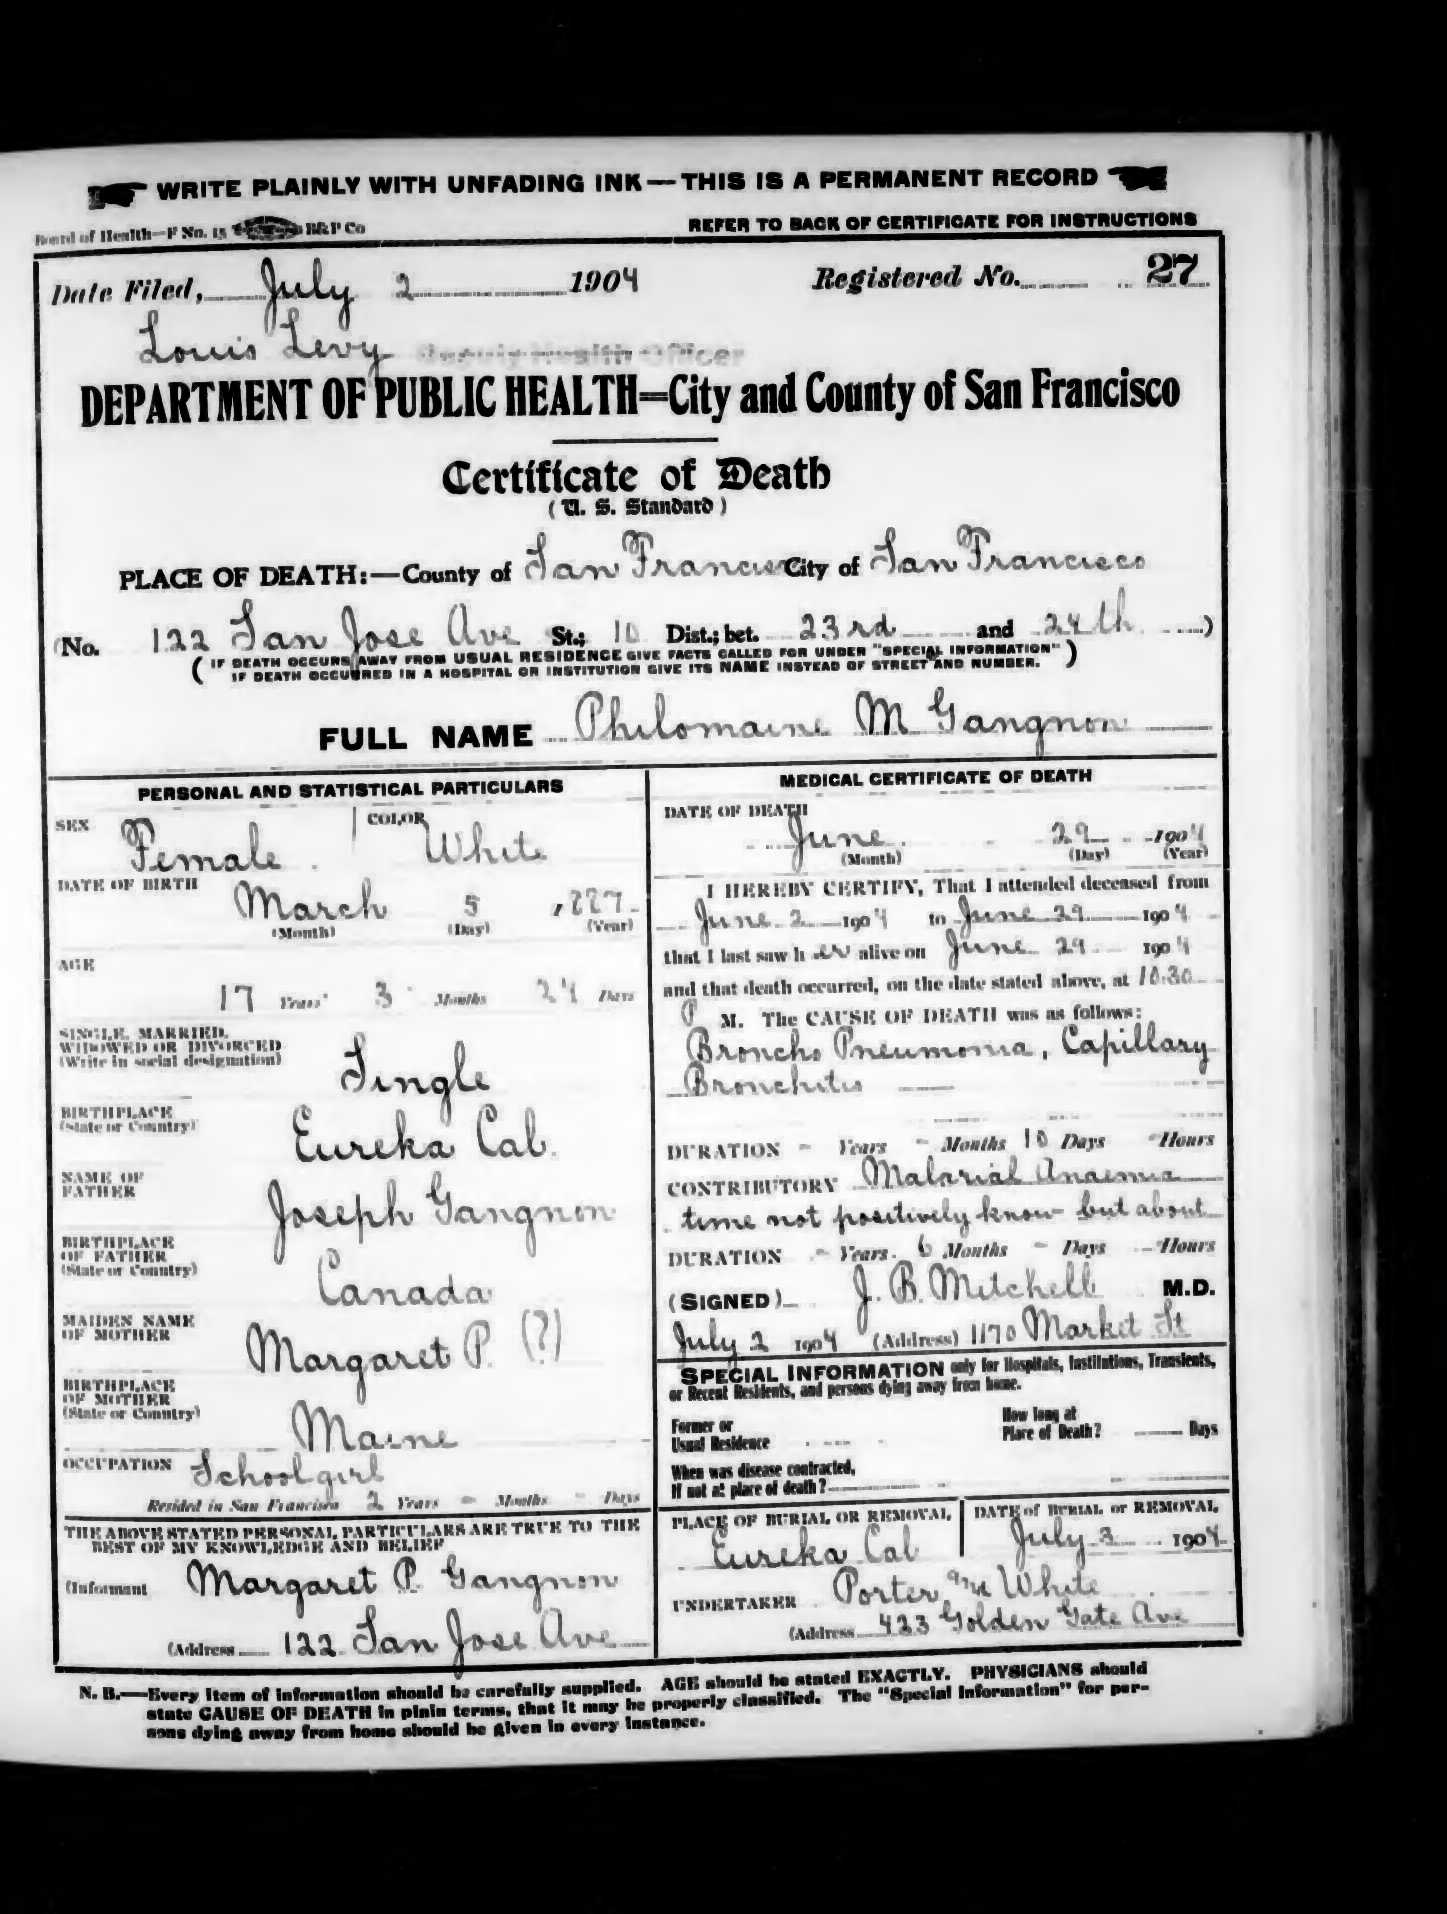 WRITE PLAINLY WITH UNFADING INK—THIS IS A PERMANENT RECORD
Board of Health—F No. 15 B&P Co REFER TO BACK OF CERTIFICATE FOR INSTRUCTIONS
Date Filed, July 2 1904 Registered No. 27
Louis Levy Deputy Health Officer
DEPARTMENT OF PUBLIC HEALTH=City and County of San Francisco
Certificate of Death
(U. S. Standard)
PLACE OF DEATH:—County of San Francisco City of San Francisco
(No. 122 San Jose Ave St.; 10 Dist.; bet. 23rd and 24th )
( IF DEATH OCCURS AWAY FROM USUAL RESIDENCE GIVE FACTS CALLED FOR UNDER "SPECIAL INFORMATION" )
IF DEATH OCCURRED IN A HOSPITAL OR INSTITUTION GIVE ITS NAME INSTEAD OF STREET AND NUMBER.
FULL NAME Philomaine M Gangnon
PERSONAL AND STATISTICAL PARTICULARS
SEX Female COLOR White
DATE OF BIRTH
March 5 , 887
(Month) (Day) (Year)
AGE
17 Years 3 Months 24 Days
SINGLE, MARRIED,
WIDOWED OR DIVORCED
(Write in social designation)
Single
BIRTHPLACE
(State or Country)
Eureka Cal.
NAME OF
FATHER
Joseph Gangnon
BIRTHPLACE
OF FATHER
(State or Country)
Canada
MAIDEN NAME
OF MOTHER
Margaret P. (?)
BIRTHPLACE
OF MOTHER
(State or Country)
Maine
OCCUPATION Schoolgirl
Resided in San Francisco 2 Years - Months - Days
THE ABOVE STATED PERSONAL PARTICULARS ARE TRUE TO THE
BEST OF MY KNOWLEDGE AND BELIEF
(Informant Margaret P. Gangnon
(Address 122 San Jose Ave
MEDICAL CERTIFICATE OF DEATH
DATE OF DEATH
June 29 1904
(Month) (Day) (Year)
I HEREBY CERTIFY, That I attended deceased from
June 2 1904 to June 29 1904
that I last saw her alive on June 29 1904
and that death occurred, on the date stated above, at 10:30
P M. The CAUSE OF DEATH was as follows:
Broncho Pneumonia, Capillary
Bronchitis
DURATION - Years - Months 10 Days - Hours
CONTRIBUTORY Malarial Anaemia
time not positively know but about
DURATION - Years 6 Months - Days - Hours
(SIGNED) J. B. Mitchell M.D.
July 2 1904 (Address) 1170 Market St
SPECIAL INFORMATION only for Hospitals, Institutions, Transients,
or Recent Residents, and persons dying away from home.
Former or
Usual Residence
How long at
Place of Death? Days
When was disease contracted,
If not at place of death?
PLACE OF BURIAL OR REMOVAL
Eureka Cal
DATE of BURIAL or REMOVAL
July 3 1904
UNDERTAKER Porter and White
(Address 423 Golden Gate Ave
N. B.—Every item of information should be carefully supplied. AGE should be stated EXACTLY. PHYSICIANS should
state CAUSE OF DEATH in plain terms, that it may be properly classified. The "Special Information" for per-
sons dying away from home should be given in every instance.